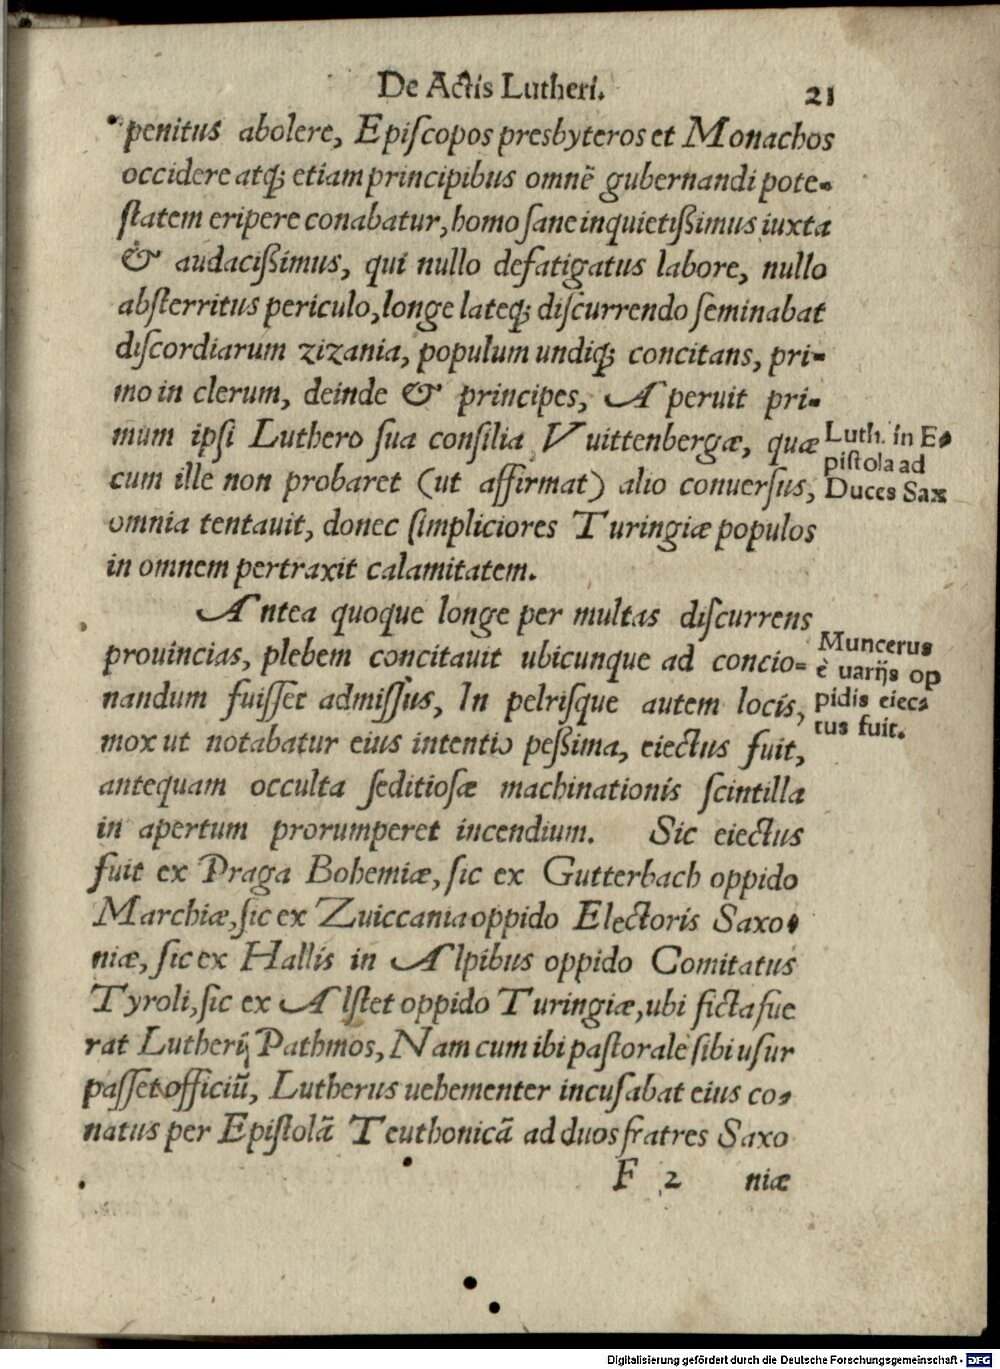 De Actis Lutheri. 21
penitus abolere, Episcopos presbyteros et Monachos
occidere atq; etiam principibus omnē gubernandi pote-
statem eripere conabatur, homo sane inquietißimus iuxta
& audacißimus, qui nullo defatigatus labore, nullo
absterritus periculo, longe lateq; discurrendo seminabat
discordiarum zizania, populum undiq; concitans, pri-
mo in clerum, deinde & principes, Aperuit pri-
mum ipsi Luthero sua consilia Vuittenbergæ, quæ
cum ille non probaret (ut affirmat) alio conuersus,
omnia tentauit, donec simpliciores Turingiæ populos
in omnem pertraxit calamitatem.
Luth. in E-
pistola ad
Duces Sax
Antea quoque longe per multas discurrens
prouincias, plebem concitauit ubicunque ad concio-
nandum fuisset admissus, In pelrisque autem locis,
mox ut notabatur eius intentio peßima, eiectus fuit,
antequam occulta seditiosæ machinationis scintilla
in apertum prorumperet incendium. Sic eiectus
fuit ex Praga Bohemiæ, sic ex Gutterbach oppido
Marchiæ, sic ex Zuiccania oppido Electoris Saxo-
niæ, sic ex Hallis in Alpibus oppido Comitatus
Tyroli, sic ex Alstet oppido Turingiæ, ubi ficta fue
rat Lutherij Pathmos, Nam cum ibi pastorale sibi usur
passet officiū, Lutherus uehementer incusabat eius co-
natus per Epistolā Teuthonicā ad duos fratres Saxo
Muncerus
è uarijs op
pidis eiec-
tus fuit.
F 2 niæ
Digitalisierung gefördert durch die Deutsche Forschungsgemeinschaft - DFG